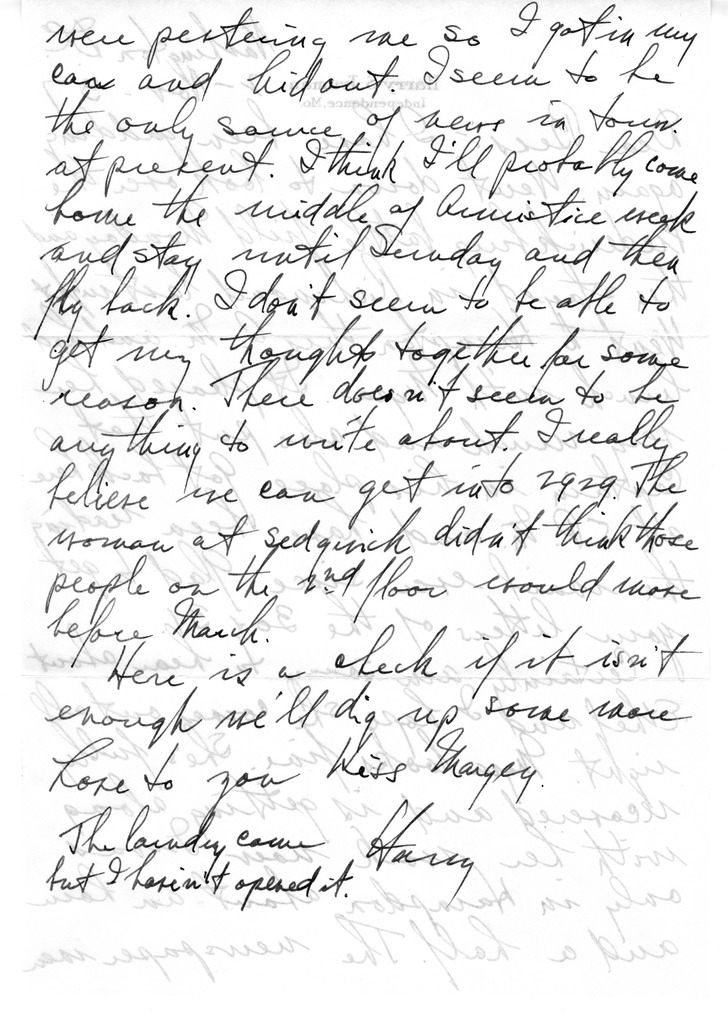 were pestering me so I got in my
car and hid out. I seem to be
the only source of news in town
at present. I think I'll probably come
home the middle of Armistice week
and stay until Sunday and then
fly back. I don't seem to be able to
get my thoughts together for some
reason. There doesn't seem to be
anything to write about. I really
believe we can get into 2929. The
woman at Sedgwick didn't think those
people on the 2nd floor would move
before March.
Here is a check if it isn't
enough we'll dig up some more
Love to you Kiss Margey.
The laundry came
but I haven't opened it.
Harry
Harry
Independence, Mo.